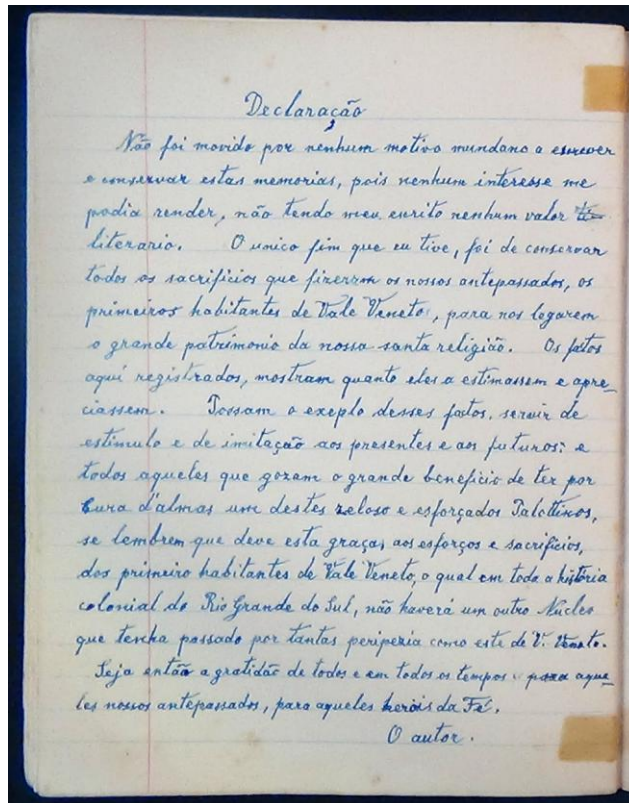 Declaração
Não foi movido por nenhum motivo mundano a escrever
e conservar estas memorias, pois nenhum interesse me
podia render, não tendo meu escrito nenhum valor
literario. O unico fim que eu tive, foi de conservar
todos os sacrificios que fizerem os nossos antepassados, os
primeiros habitantes de Vale Veneto, para nos legarem
o grande patrimonio da nossa santa religião. Os fatos
aquí registrados, mostram quanto eles a estimassem e apre-
ciassem. Possam o exeplo desses fatos, servir de
estimulo e de imitação aos presentes e aos futuros: e
todos aqueles que gozam o grande beneficio de ter por
Cura d'almas um destes zeloso e esforçados Palottinos,
se lembrem que deve esta graça, aos esforços e sacrificios,
dos primeiro habitantes de Vale Veneto, o qual em toda a história
colonial do Rio Grande do Sul, não haverá um outro Nucleo
que tenha passado por tantas peripezia como este de V. Veneto.
Seja então a gratidão de todos e em todos os tempos para aque-
les nossos antepassados, para aqueles herois da Fé.
O autor.